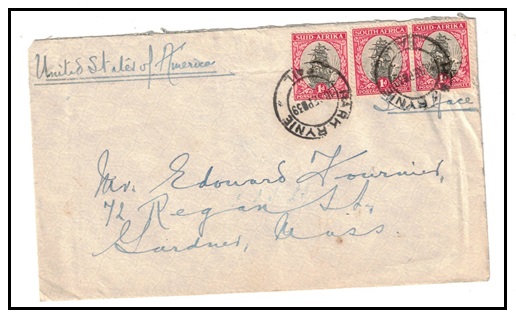 SUID-AFRIKA SOUTH AFRICA SUID-AFRIKA
1D 1D 1D
United States of America
PARK RYNIE
Surface
Mr. Edouard Fournier,
72 Regan St.
Gardner, Mass.